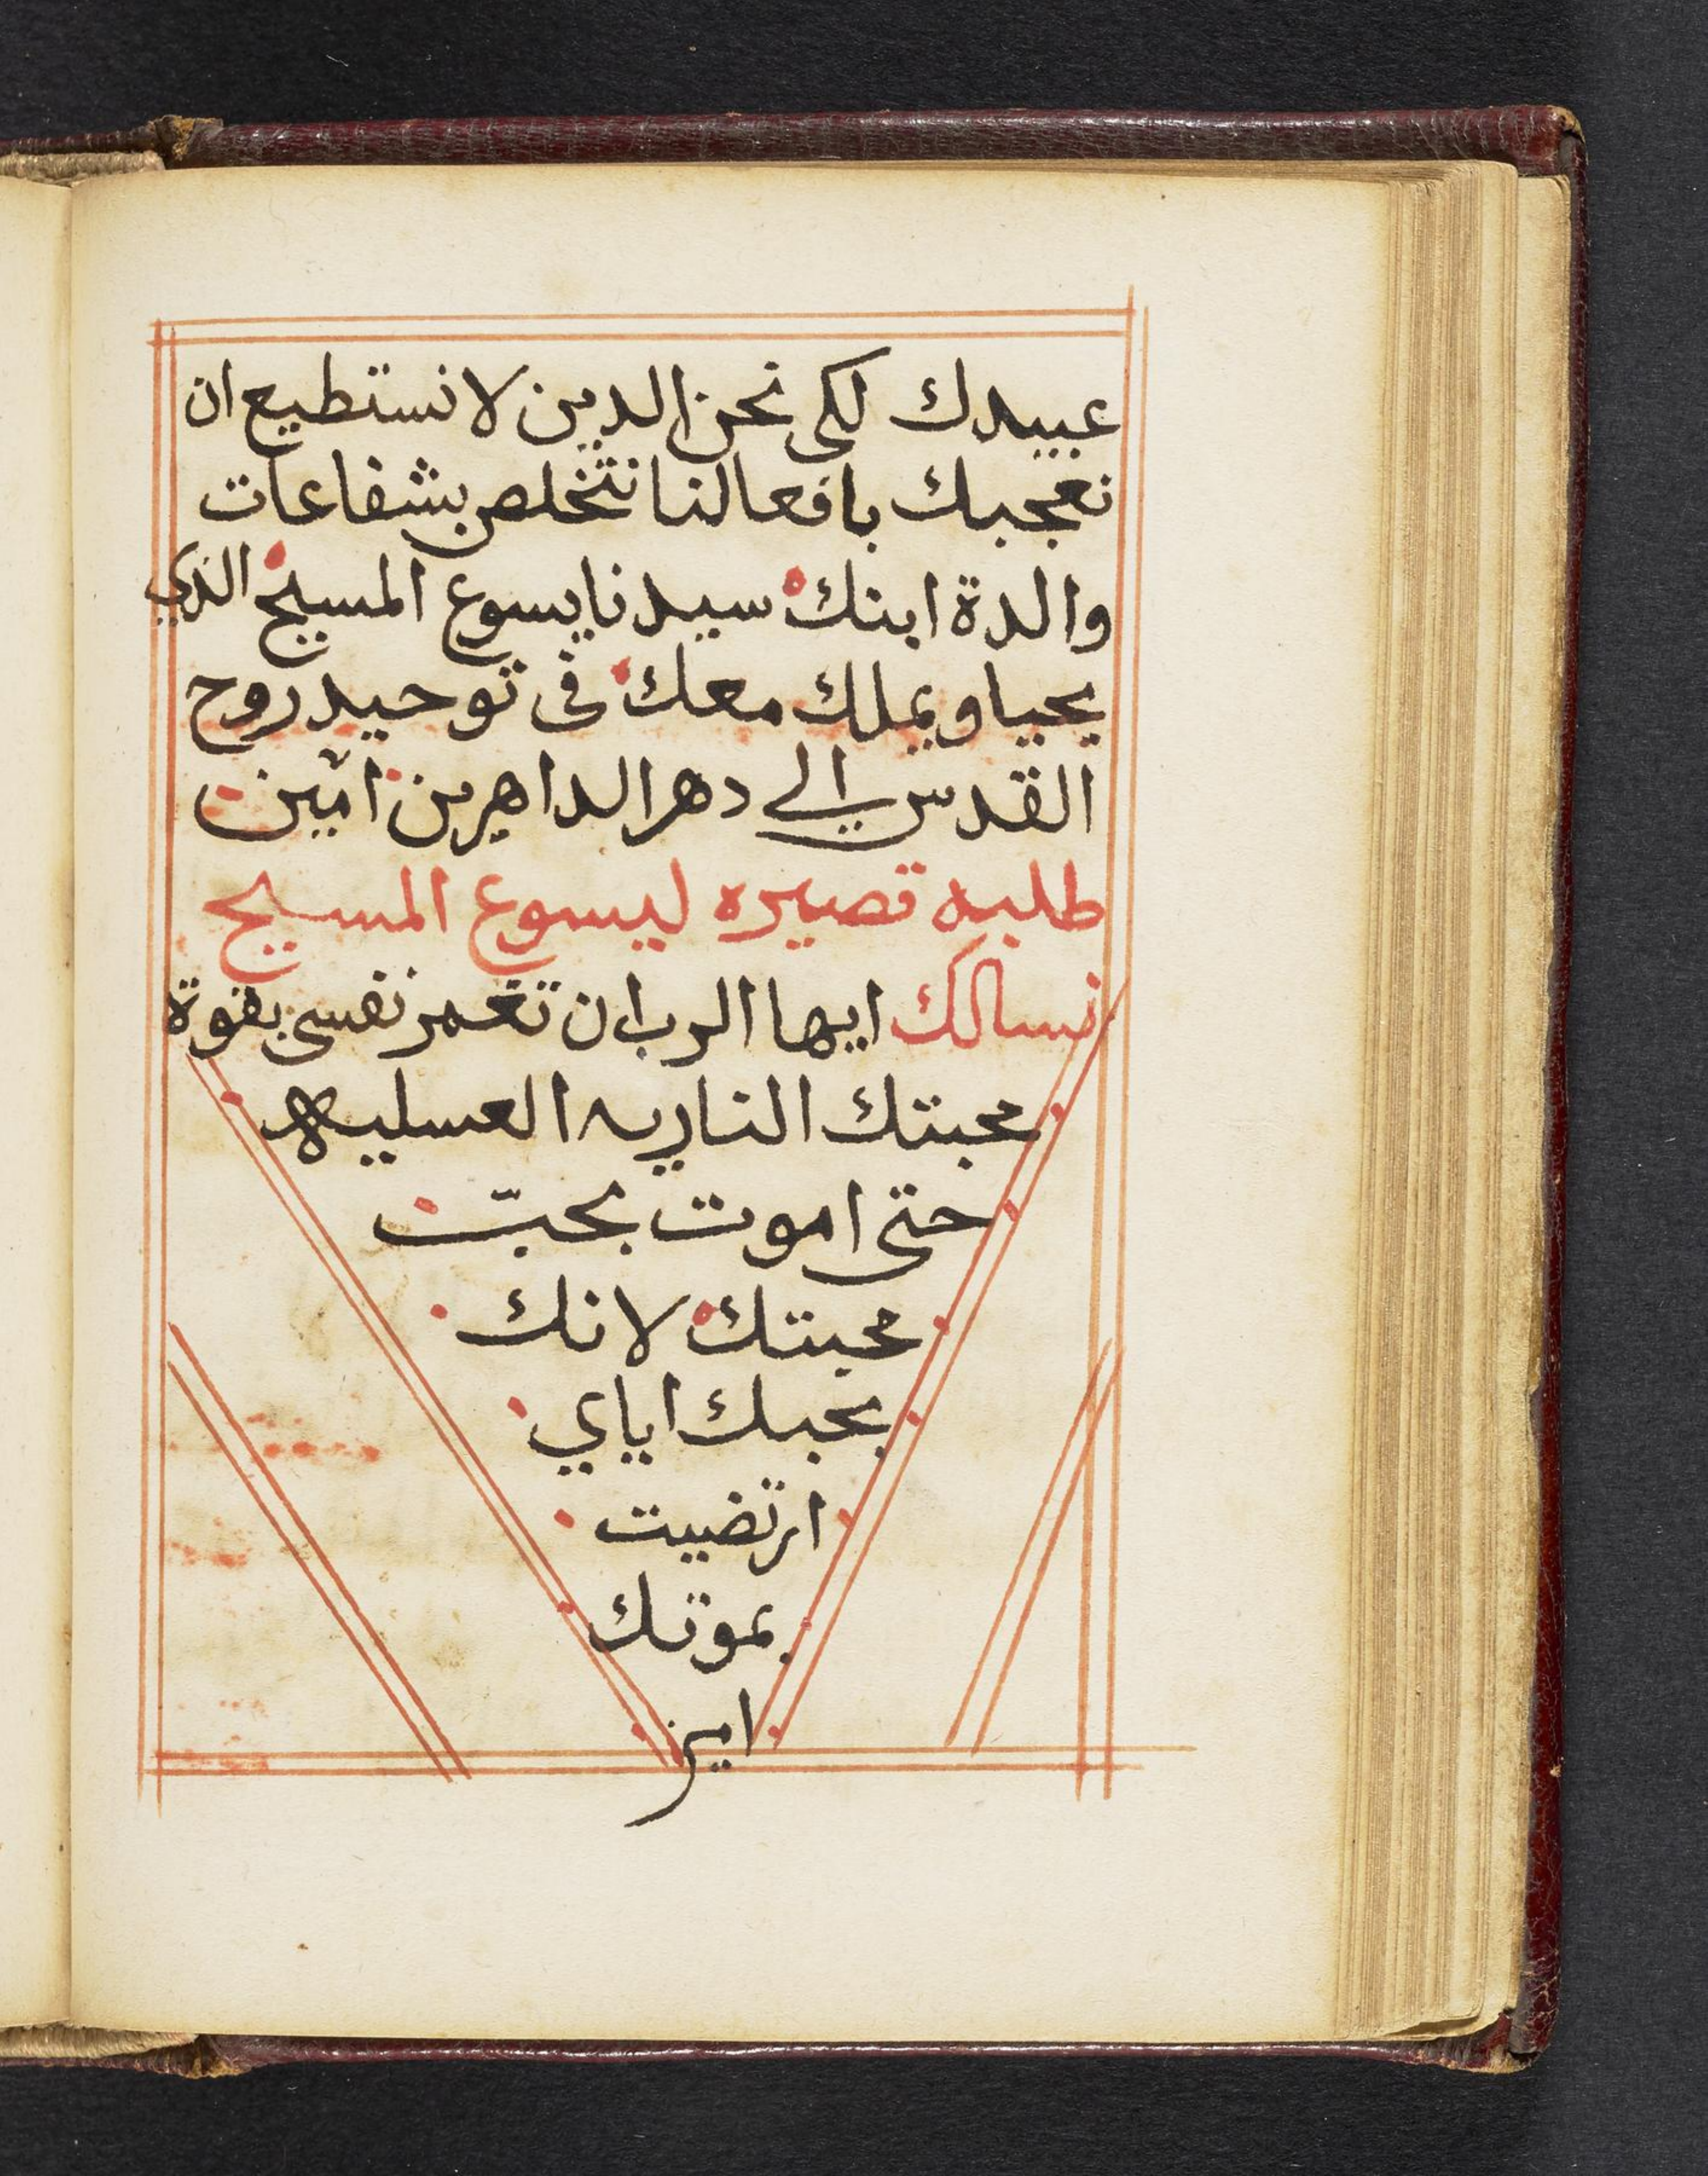 عبيدك لكى نحن الدين لا نستطيع ان
نعجبك بافعالنا نتخلص بشفاعات
والدة ابنك سيدنا يسوع المسيح الذي
يحيا ويملك معك فى توحيد روح
القدس الي دهر الداهرين امين
طلبه قصيره ليسوع المسيح
نسالك ايها الرب ان تغمر نفسى بقوة
محبتك الناريه العسليه
حتى اموت بحبّ
محبتك لانك
بحبك اياي
ارتضيت
بموتك
امين